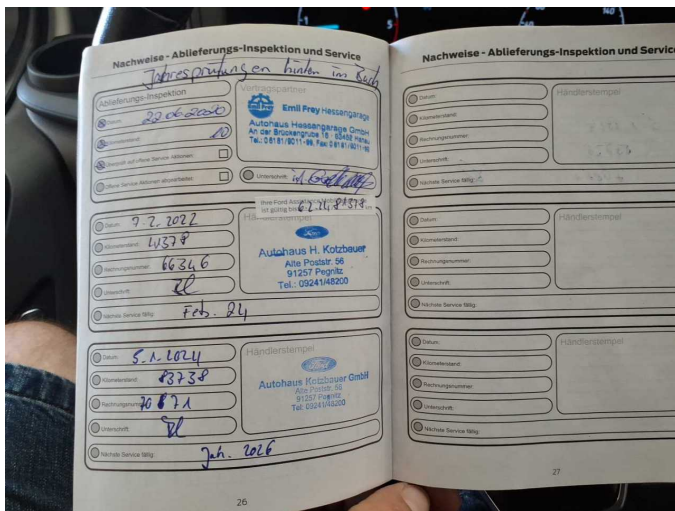 Nachweise - Ablieferungs-Inspektion und Service
Jahresprüfungen hinten im Buch
Ablieferungs-Inspektion
Datum: 22.06.2020
Kilometerstand: 10
Überprüft auf offene Service Aktionen:
Offene Service Aktionen abgearbeitet:
Vertragspartner
Emil Frey Hessengarage
Autohaus Hessengarage GmbH
An der Brückengrube 15 · 63452 Hanau
Unterschrift:
Ihre Ford Assistance
ist gültig bis
Datum: 7.2.2022
Kilometerstand:
Rechnungsnummer: 66346
Unterschrift:
Nächste Service fällig: Feb. 24
Händlerstempel
Ford
Autohaus H. Kotzbauer
Alte Poststr. 56
91257 Pegnitz
Tel.: 09241/48200
Datum: 5.1.2024
Kilometerstand: 83738
Rechnungsnummer: 70871
Unterschrift:
Nächste Service fällig: Jan. 2026
Händlerstempel
Ford
Autohaus Kotzbauer GmbH
Alte Poststr. 56
91257 Pegnitz
Tel: 09241/48200
26
Nachweise - Ablieferungs-Inspektion und Service
Datum:
Kilometerstand:
Rechnungsnummer:
Unterschrift:
Nächste Service fällig:
Händlerstempel
Datum:
Kilometerstand:
Rechnungsnummer:
Unterschrift:
Nächste Service fällig:
Händlerstempel
Datum:
Kilometerstand:
Rechnungsnummer:
Unterschrift:
Nächste Service fällig:
Händlerstempel
27